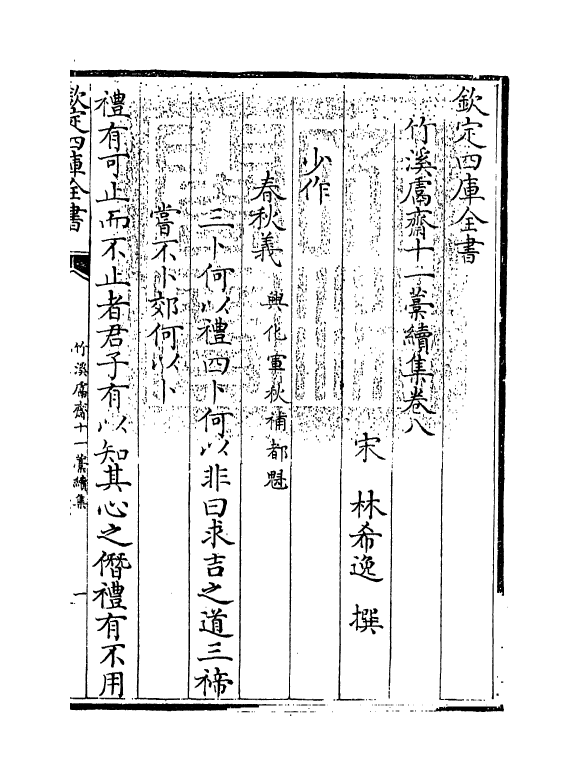 欽定四庫全書
竹溪鬳齋十一藁續集卷八
宋 林希逸 撰
少作
春秋義 興化軍秋補都魁
三卜何以禮四卜何以非曰求吉之道三禘
嘗不卜郊何以卜
禮有可止而不止者君子有以知其心之僭禮有不用
欽定四庫全書
竹溪鬳齋十一藁續集
一